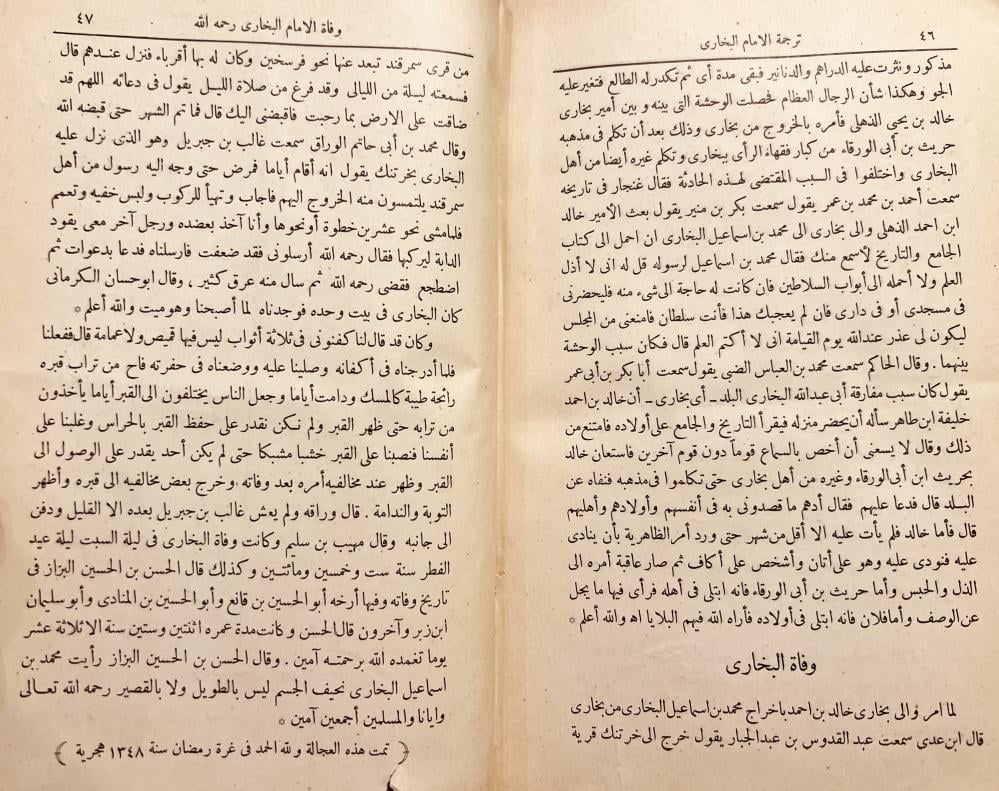 ٤٦
ترجمة الامام البخارى
مذكور ونثرت عليه الدراهم والدنانير فبقى مدة أى ثم تكدر له الطالع فتغير عليه
الجو وهكذا شأن الرجال العظام فحصلت الوحشة التى بينه وبين أمير بخارى
خالد بن يحيى الذهلى فأمره بالخروج من بخارى وذلك بعد أن تكلم فى مذهبه
حريث بن أبى الورقاء من كبار فقهاء الرأى ببخارى وتكلم غيره أيضا من أهل
البخارى واختلفوا فى السبب المقتضى لهذه الحادثة فقال غنجار فى تاريخه
سمعت أحمد بن محمد بن عمر يقول سمعت بكر بن منير يقول بعث الأمير خالد
ابن احمد الذهلى والى بخارى الى محمد بن اسماعيل البخارى ان احمل الى كتاب
الجامع والتاريخ لأسمع منك فقال محمد بن اسماعيل لرسوله قل له انى لا أذل
العلم ولا أحمله الى أبواب السلاطين فان كانت له حاجة الى شىء منه فليحضرنى
فى مسجدى أو فى دارى فان لم يعجبك هذا فأنت سلطان فامنعنى من المجلس
ليكون لى عذر عند الله يوم القيامة انى لا أكتم العلم قال فكان سبب الوحشة
بينهما . وقال الحاكم سمعت محمد بن العباس الضبى يقول سمعت أبا بكر بن أبى عمر
يقول كان سبب مفارقة أبى عبد الله البخارى البلد ـ أى بخارى ـ أن خالد بن احمد
خليفة ابن طاهر سأله أن يحضر منزله فيقرأ التاريخ والجامع على أولاده فامتنع من
ذلك وقال لا يسعنى أن أخص بالسماع قوماً دون قوم آخرين فاستعان خالد
بحريث ابن أبى الورقاء وغيره من أهل بخارى حتى تكلموا فى مذهبه فنفاه عن
البلد قال فدعا عليهم فقال أدهم ما قصدونى به فى أنفسهم وأولادهم وأهليهم
قال فأما خالد فلم يأت عليه الا أقل من شهر حتى ورد أمر الظاهرية بأن ينادى
عليه فنودى عليه وهو على أتان وأشخص على أكاف ثم صار عاقبة أمره الى
الذل والحبس وأما حريث بن أبى الورقاء فانه ابتلى فى أهله فرأى فيها ما يجل
عن الوصف وأما فلان فانه ابتلى فى أولاده فأراه الله فيهم البلايا اه والله أعلم *
وفاة البخارى
لما امر والى بخارى خالد بن احمد باخراج محمد بن اسماعيل البخارى من بخارى
قال ابن عدى سمعت عبد القدوس بن عبد الجبار يقول خرج الى خرتنك قرية
وفاة الامام البخارى رحمه الله
٤٧
من قرى سمرقند تبعد عنها نحو فرسخين وكان له بها أقرباء فنزل عندهم قال
فسمعته ليلة من الليالى وقد فرغ من صلاة الليل يقول فى دعائه اللهم قد
ضاقت على الارض بما رحبت فاقبضنى اليك قال فما تم الشهر حتى قبضه الله
وقال محمد بن أبى حاتم الوراق سمعت غالب بن جبريل وهو الذى نزل عليه
البخارى بخرتنك يقول انه أقام أياما فمرض حتى وجه اليه رسول من أهل
سمرقند يلتمسون منه الخروج اليهم فاجاب وتهيأ للركوب ولبس خفيه وتعمم
فلما مشى نحو عشرين خطوة أونحوها وأنا آخذ بعضده ورجل آخر معى يقود
الدابة ليركبها فقال رحمه الله أرسلونى فقد ضعفت فارسلناه فدعا بدعوات ثم
اضطجع فقضى رحمه الله ثم سال منه عرق كثير ، وقال ابوحسان الكرمانى
كان البخارى فى بيت وحده فوجدناه لما أصبحنا وهوميت والله أعلم *
وكان قد قال لنا كفنونى فى ثلاثة أثواب ليس فيها قميص ولا عمامة قال ففعلنا
فلما أدرجناه فى أكفانه وصلينا عليه ووضعناه فى حفرته فاح من تراب قبره
رائحة طيبة كالمسك ودامت أياما وجعل الناس يختلفون الى القبر أياما يأخذون
من ترابه حتى ظهر القبر ولم نكن نقدر على حفظ القبر بالحراس وغلبنا على
أنفسنا فنصبنا على القبر خشبا مشبكا حتى لم يكن أحد يقدر على الوصول الى
القبر وظهر عند مخالفيه أمره بعد وفاته ، وخرج بعض مخالفيه الى قبره وأظهر
التوبة والندامة . قال وراقه ولم يعش غالب بن جبريل بعده الا القليل ودفن
الى جانبه وقال مهيب بن سليم وكانت وفاة البخارى فى ليلة السبت ليلة عيد
الفطر سنة ست وخمسين ومائتين وكذلك قال الحسن بن الحسين البزاز فى
تاريخ وفاته وفيها أرخه أبو الحسين بن قانع وأبو الحسين بن المنادى وأبو سليمان
ابن زبر وآخرون قال الحسن وكانت مدة عمره اثنتين وستين سنة الا ثلاثة عشر
يوما تغمده الله برحمته آمين . وقال الحسن بن الحسين البزاز رأيت محمد بن
اسماعيل البخارى نحيف الجسم ليس بالطويل ولا بالقصير رحمه الله تعالى
وايانا والمسلمين أجمعين آمين *
( تمت هذه العجالة ولله الحمد فى غرة رمضان سنة ١٣٤٨ هجرية )